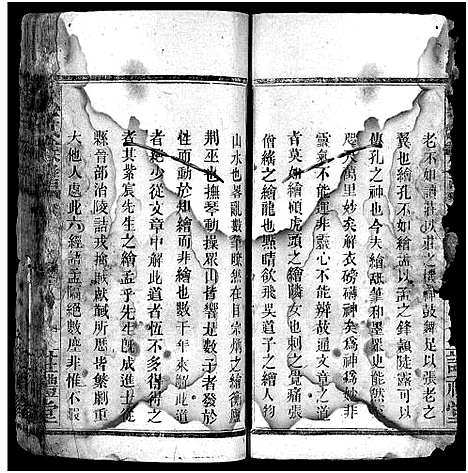 老不如讀莊以莊之神鼓舞足以張老之
翼也繪孔不如繪孟以孟之鋒穎陡露可以
傳孔之神也今夫繪舐筆和墨畢史能然至
咫尺萬里妙矣解衣磅礴神矣爲神爲妙非
靈氣不能運非靈心不能辨故通文章之道
者莫如繪顧虎頭之繪隣女也刺之覺痛張
僧繇之繪龍也點睛欲飛吳道子之繪人物
山水也畧亂數筆瞭然在目宗炳之繪衡廬
荆巫也撫琴動操衆山皆響是數子者發於
性而動於知繪而非繪也數千年來溯此道
者絕少從文章中解此道者恆不多得得之
者其紫宸先生之繪孟乎先生旣成進士從
縣晉部治陵詰戎擒賊獻馘所歷皆繁劇重
大他人處此六經諸孟隔絕數塵非惟不暇